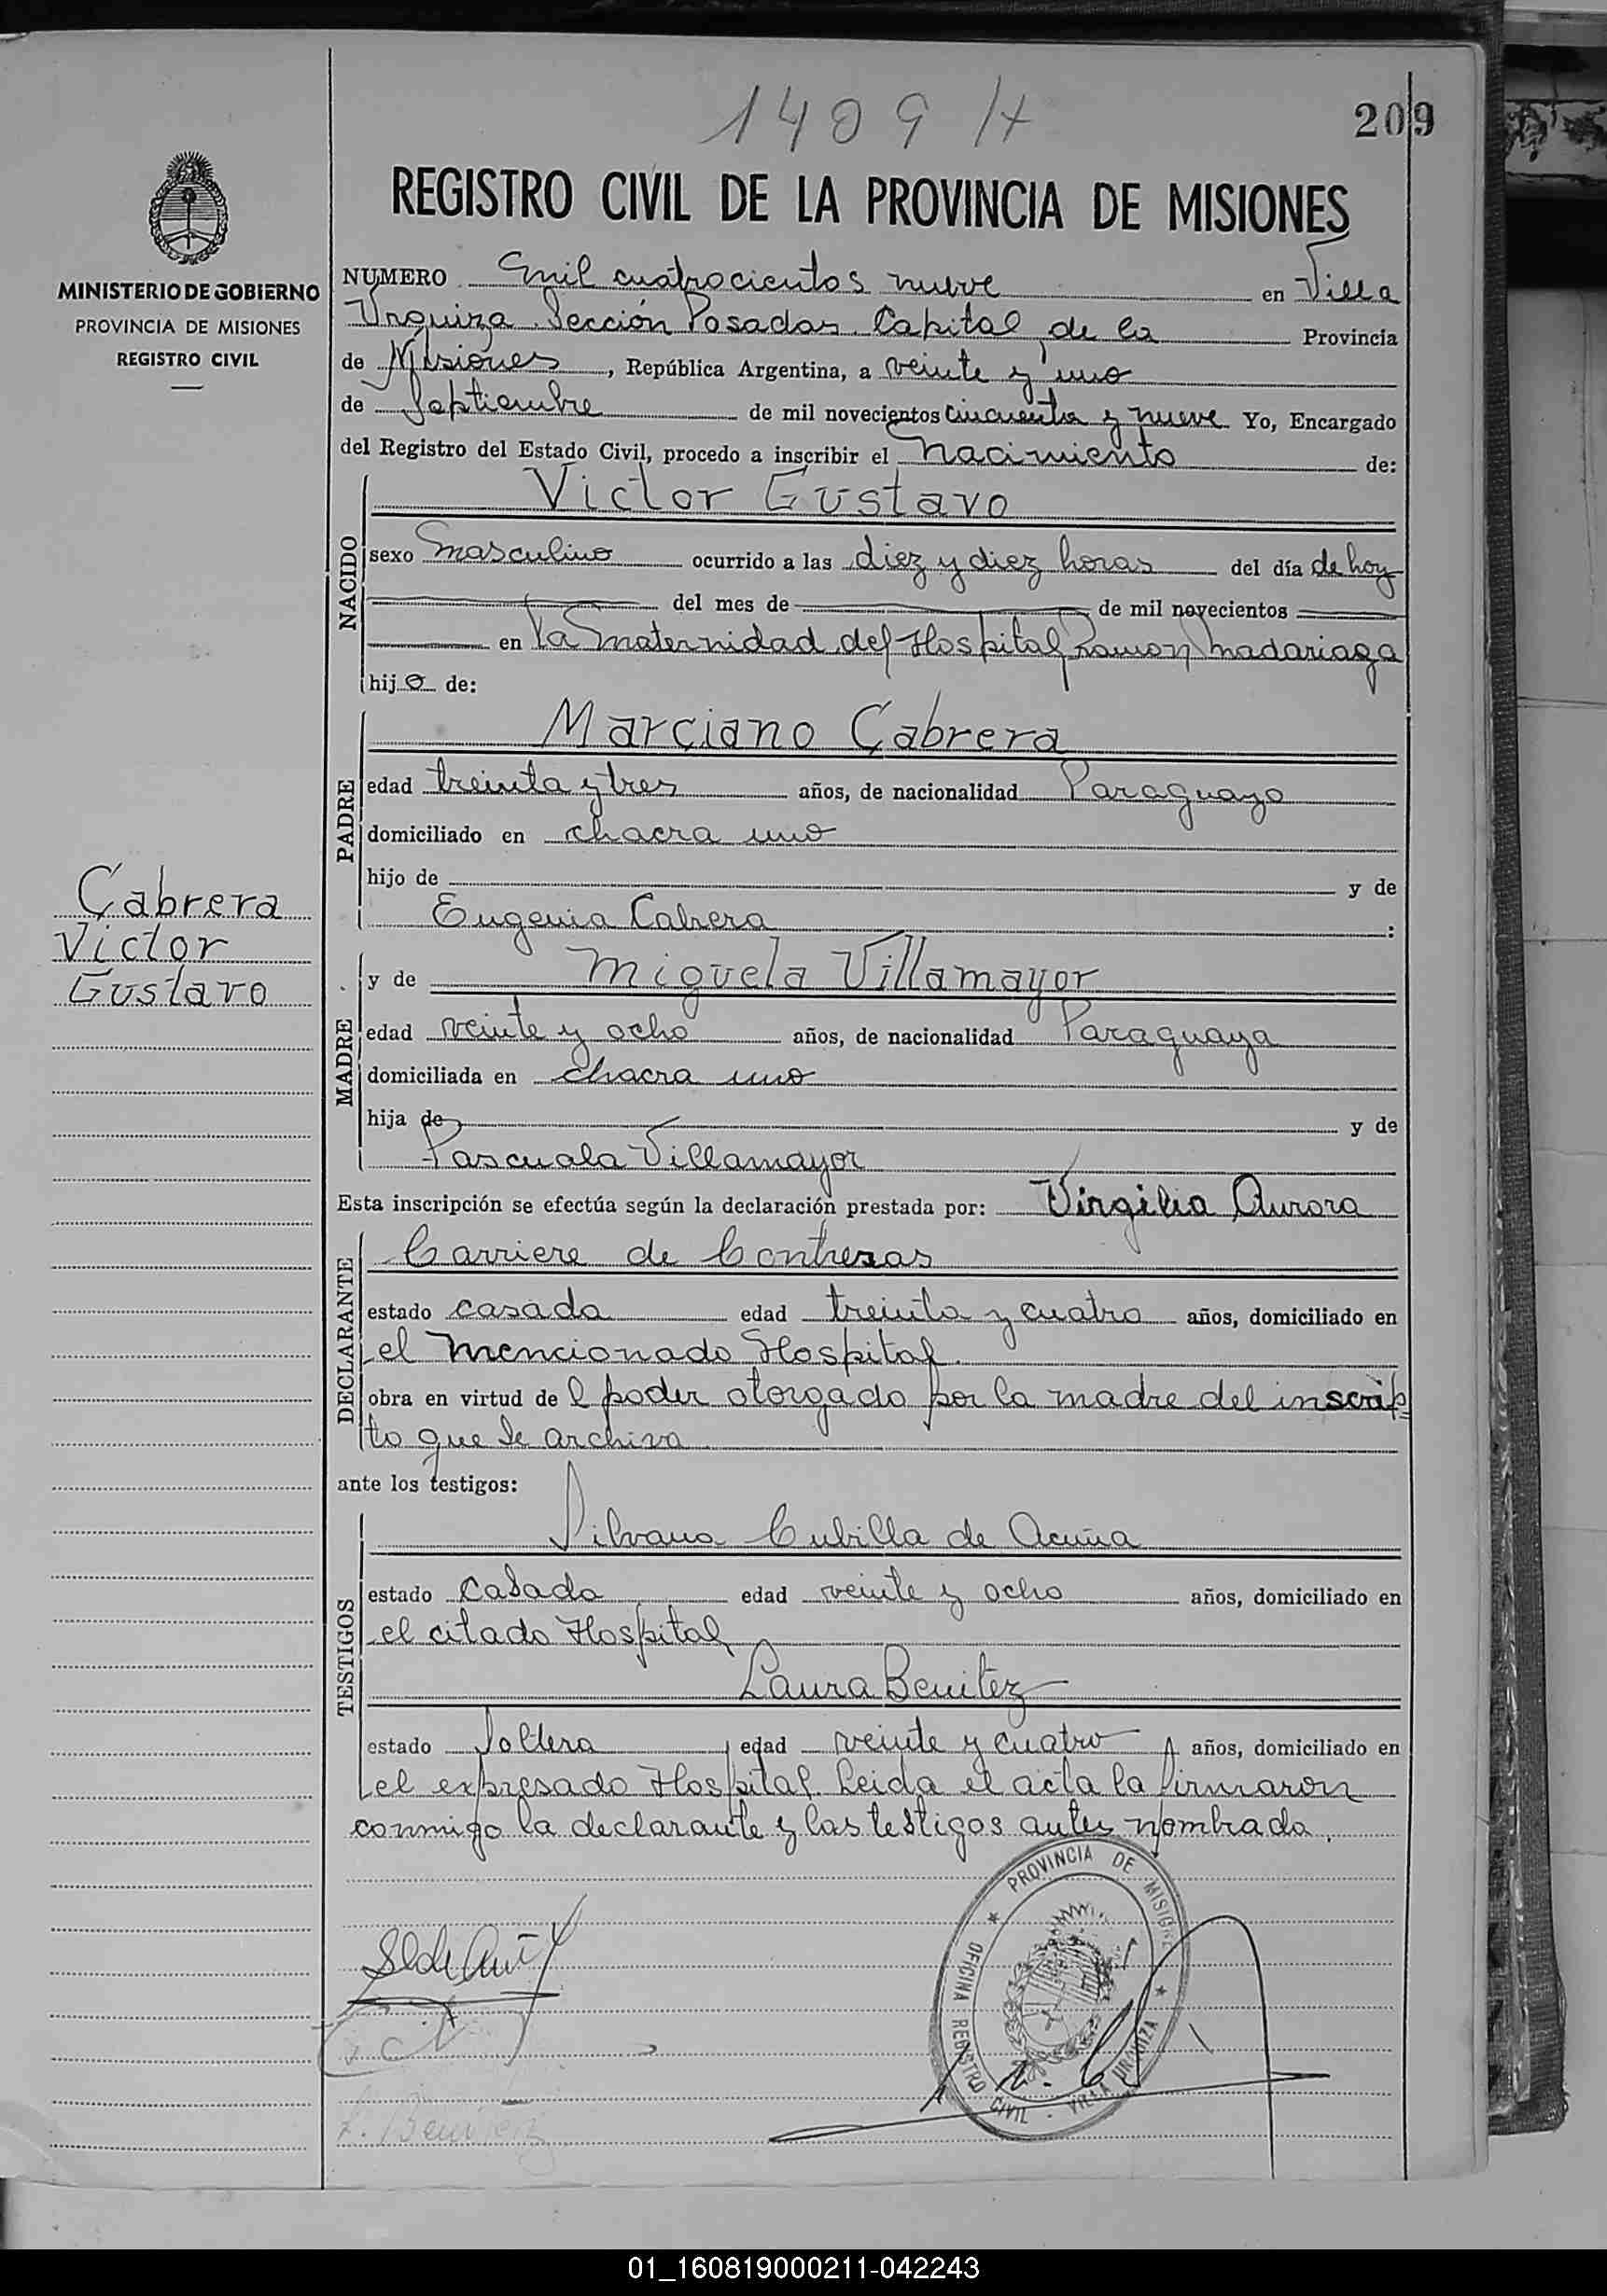 1409 H
209
REGISTRO CIVIL DE LA PROVINCIA DE MISIONES
MINISTERIO DE GOBIERNO
PROVINCIA DE MISIONES
REGISTRO CIVIL
NUMERO mil cuatrocientos nueve en Villa
Urquiza Sección Posadas Capital de la Provincia
de Misiones, República Argentina, a veinte y uno
de Septiembre de mil novecientos cincuenta y nueve Yo, Encargado
del Registro del Estado Civil, procedo a inscribir el nacimiento de:
NACIDO
Victor Gustavo
sexo masculino ocurrido a las diez y diez horas del día de hoy
del mes de de mil novecientos
en la maternidad del Hospital Ramon Madariaga
hijo de:
PADRE
Marciano Cabrera
edad treinta y tres años, de nacionalidad Paraguayo
domiciliado en chacra uno
hijo de y de
Eugenia Cabrera :
Cabrera
Victor
Gustavo
MADRE
y de Miguela Villamayor
edad veinte y ocho años, de nacionalidad Paraguaya
domiciliada en chacra uno
hija de y de
Pascuala Villamayor
Esta inscripción se efectúa según la declaración prestada por: Virgilia Aurora
DECLARANTE
Carriere de Contreras
estado casada edad treinta y cuatro años, domiciliado en
el mencionado Hospital.
obra en virtud de l poder otorgado por la madre del inscrip=
to que se archiva
ante los testigos:
TESTIGOS
Silvana Cubilla de Acuña
estado casada edad veinte y ocho años, domiciliado en
el citado Hospital
Laura Benitez
estado Soltera edad veinte y cuatro años, domiciliado en
el expresado Hospital. Leida el acta la firmaron
conmigo la declarante y las testigos antes nombrada.
PROVINCIA DE MISIONES
OFICINA REGISTRO CIVIL - VILLA URQUIZA
L. Benitez
01_160819000211-042243